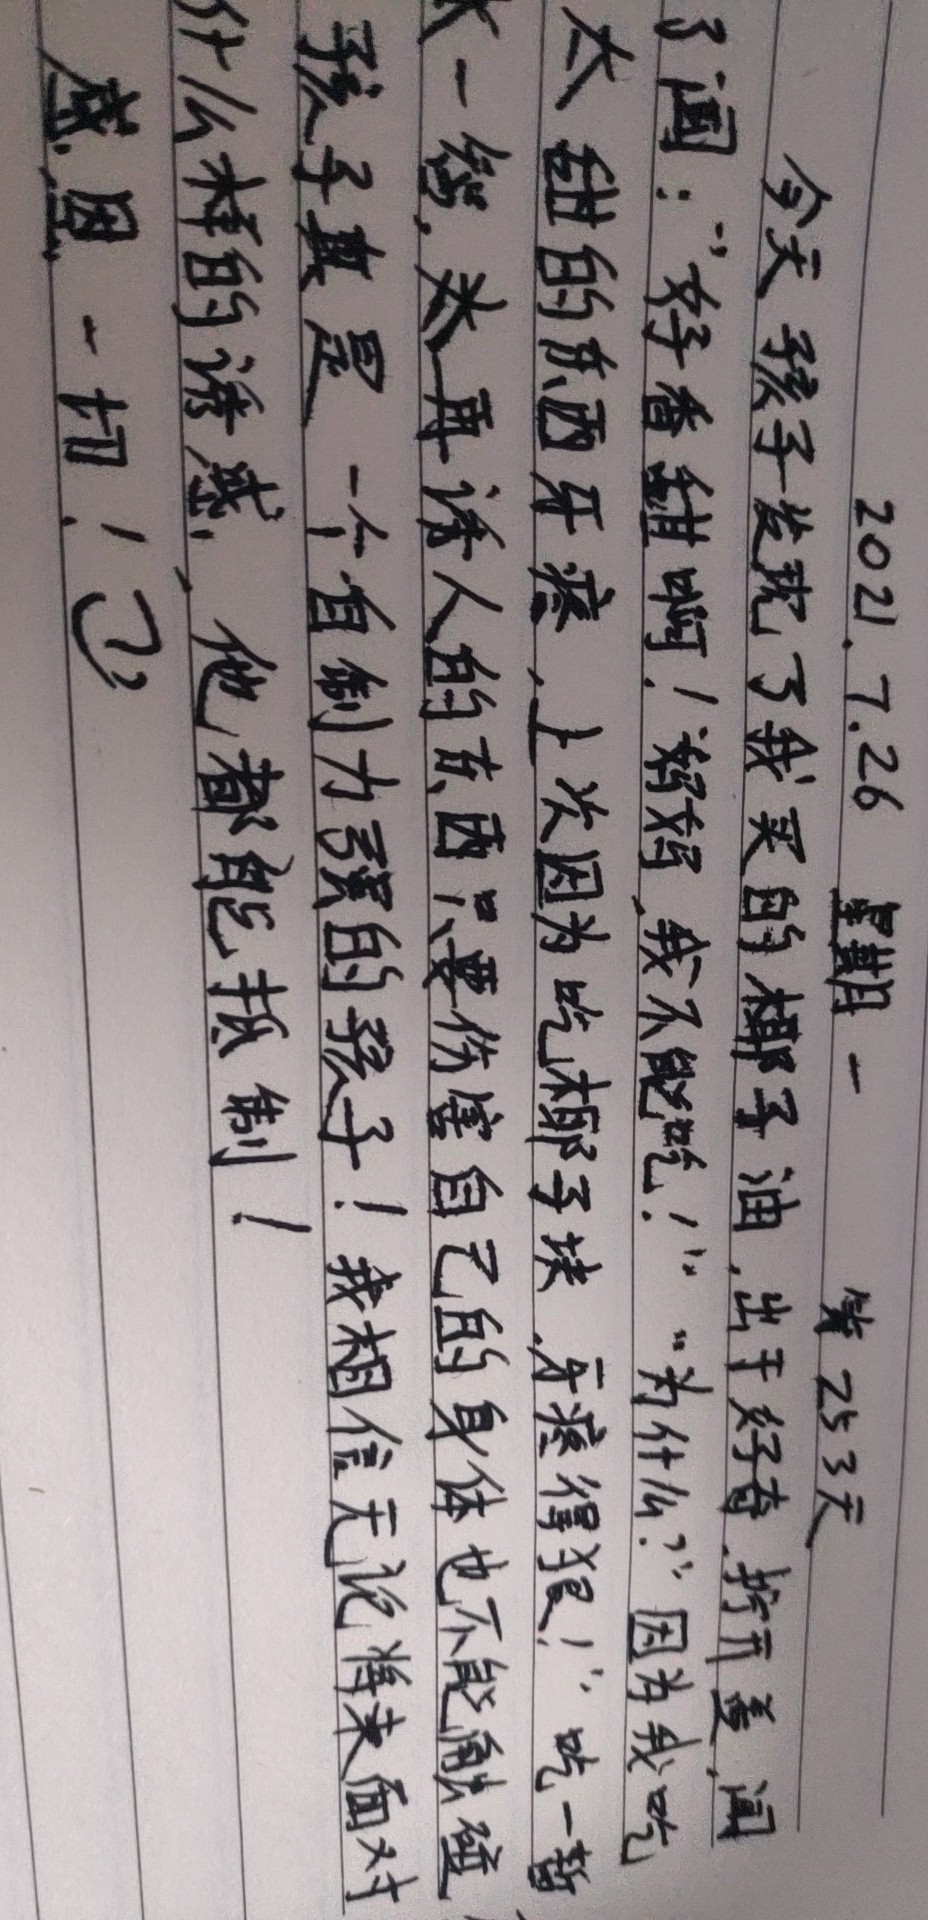 2021.7.26 星期一 第253天
今天孩子发现了我买的椰子油,出于好奇.拧开盖,闻
了闻:“好香甜啊!妈妈,我不能吃!”“为什么?”因为我吃
太甜的东西牙疼,上次因为吃椰子块,牙疼得狠!”吃一暂
长一智,太再诱人的东西只要伤害自己的身体也不能触碰
孩子真是一个自制力强的孩子!我相信无论将来面对
什么样的诱惑,他都能抵制!
感恩一切!